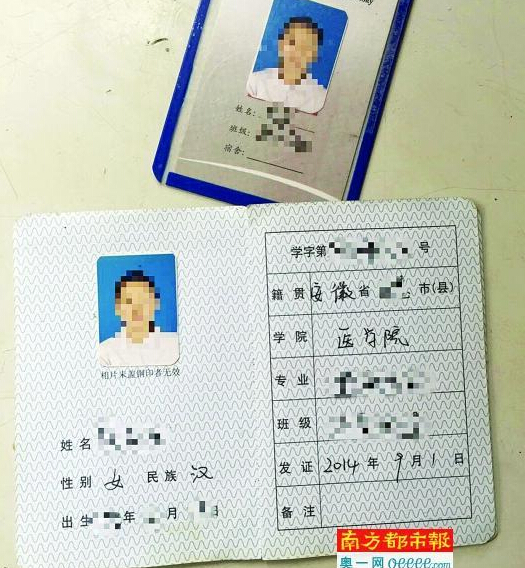 姓名:
班级:
宿舍:
相片未盖钢印者无效
姓名
性别 女 民族 汉
出生 年 月 日
学字第 号
籍贯 安徽省 市(县)
学院 医学院
专业
班级
发证 2014年9月1日
备注
南方都市報
奥一网oeeee.com